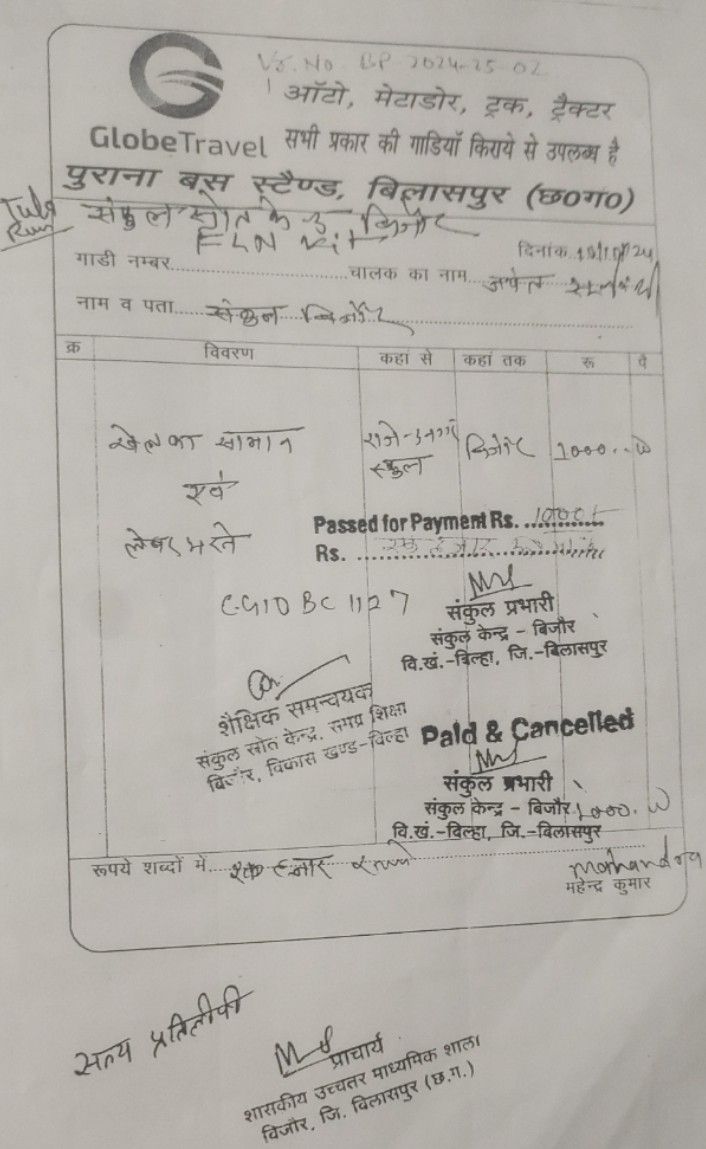 Vr. No. BP 2024-25-02
ऑटो, मेटाडोर, ट्रक, ट्रैक्टर
GlobeTravel सभी प्रकार की गाडियाँ किराये से उपलब्ध है
पुराना बस स्टैण्ड, बिलासपुर (छ०ग०)
संकुल स्रोत के
FLN Kit
दिनांक
गाडी नम्बर
चालक का नाम
नाम व पता संकुल बिजौर
क्र विवरण कहां से कहां तक रू पै
खेल का सामान स्कुल बिजौर 1000.00
एवं
Passed for Payment Rs. 1000/-
लेबर भरते
Rs. एक हजार
CG10 BC 1127
संकुल प्रभारी
संकुल केन्द्र - बिजौर
वि.खं.-बिल्हा, जि.-बिलासपुर
शैक्षिक समन्वयक
संकुल स्रोत केन्द्र, समग्र शिक्षा
बिजौर, विकास खण्ड-बिल्हा
Paid & Cancelled
संकुल प्रभारी
संकुल केन्द्र - बिजौर 1000.00
वि.खं.-बिल्हा, जि.-बिलासपुर
रूपये शब्दों में एक हजार रूपये
महेन्द्र कुमार
सत्य प्रतिलीपी
प्राचार्य
शासकीय उच्चतर माध्यमिक शाला
बिजौर, जि. बिलासपुर (छ.ग.)